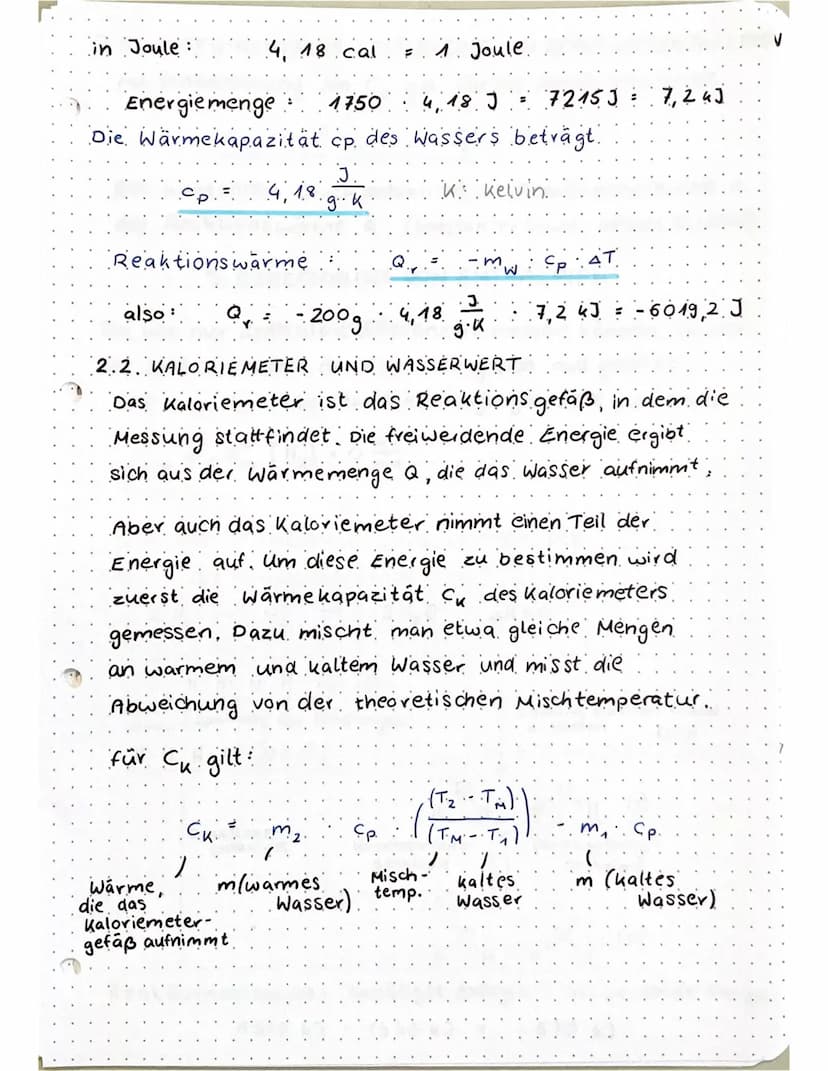 in Joule: 4,18 cal = 1 Joule
Energiemenge: 1750 · 4,18 J = 7215 J = 7,2 kJ
Die Wärmekapazität cp des Wassers beträgt.
cp = 4,18 J/g·K K: Kelvin
Reaktionswärme: Qr = -mW · cp · ΔT
also: Qr = -200g · 4,18 J/g·K · 7,2 kJ = -6019,2 J
2.2. KALORIEMETER UND WASSERWERT
Das Kaloriemeter ist das Reaktionsgefäß, in dem die
Messung stattfindet. Die freiwerdende Energie ergibt
sich aus der Wärmemenge Q, die das Wasser aufnimmt,
Aber auch das Kaloriemeter nimmt einen Teil der
Energie auf. Um diese Energie zu bestimmen wird
zuerst die Wärmekapazität CK des Kaloriemeters
gemessen. Dazu mischt man etwa gleiche Mengen
an warmem und kaltem Wasser und misst die
Abweichung von der theoretischen Mischtemperatur.
für CK gilt:
CK = m2 · cp · ((T2 - TM)/(TM - T1)) - m1 · cp
Wärme, die das Kaloriemeter-gefäß aufnimmt
m(warmes Wasser)
Misch-temp.
kaltes Wasser
m (kaltes Wasser)